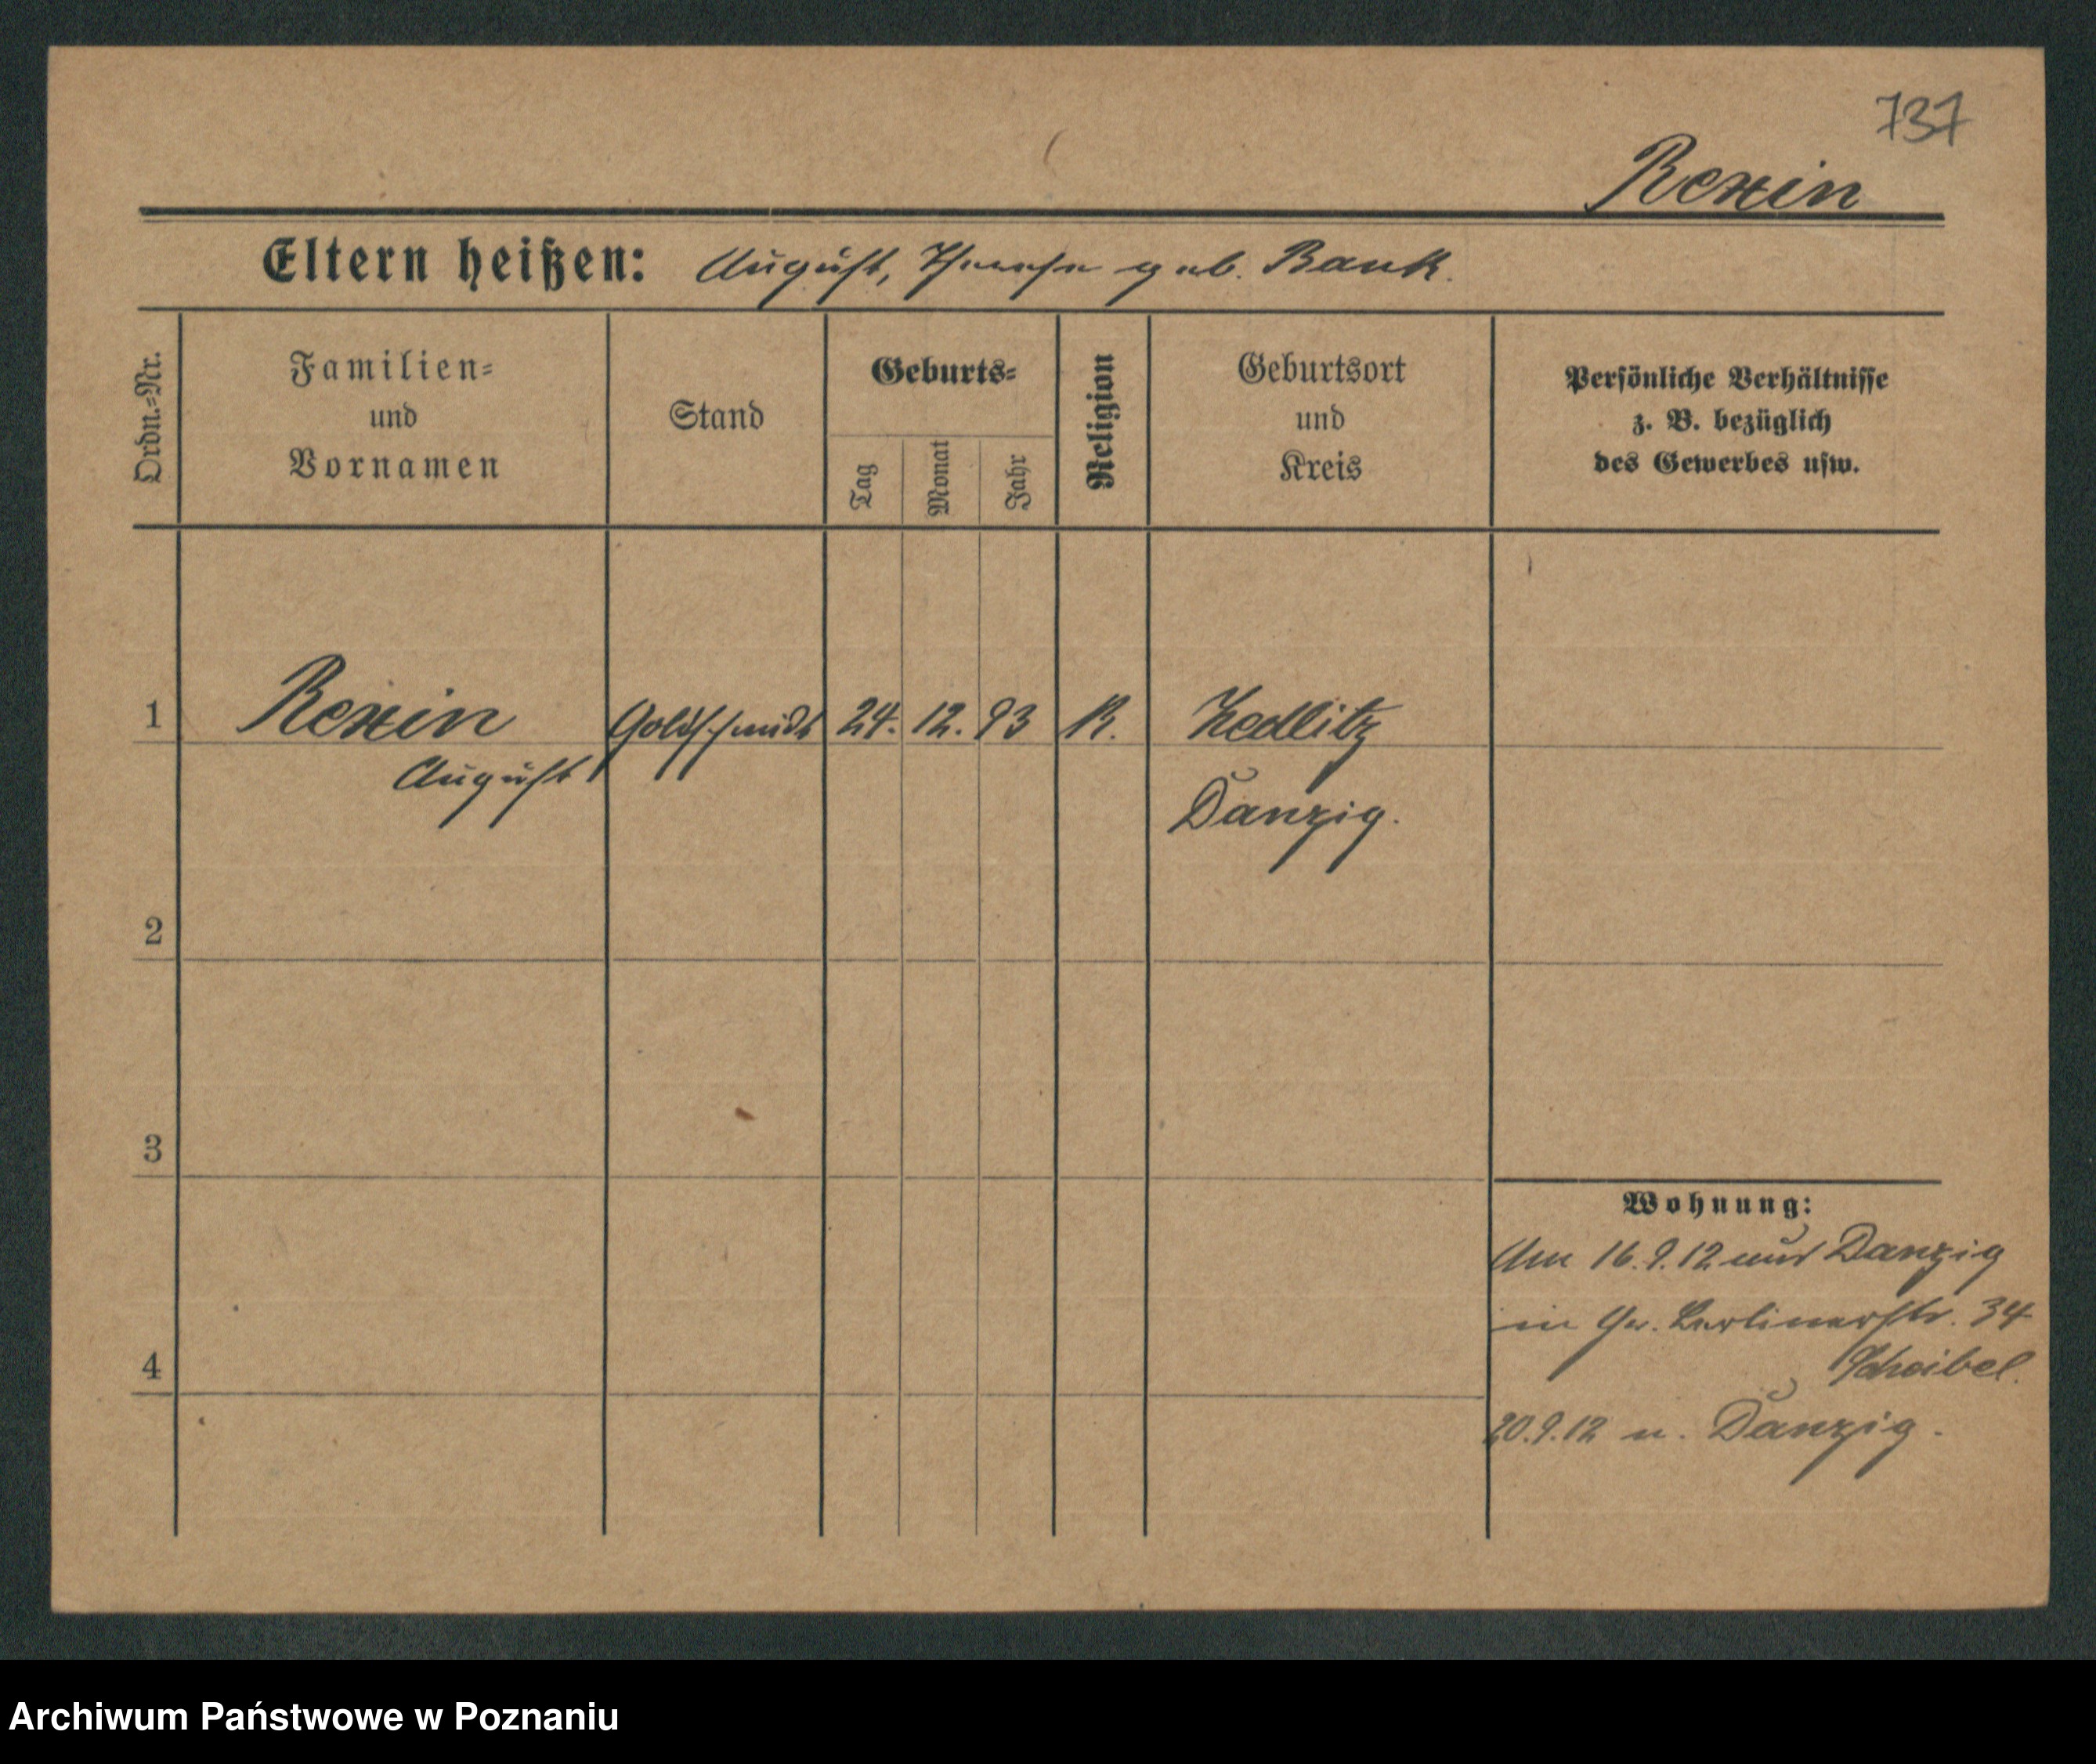 737
Rexin
Eltern heißen: August, Therese geb. Bank.
Ordn.-Nr.
Familien-
und
Vornamen
Stand
Geburts-
Tag
Monat
Jahr
Religion
Geburtsort
und
Kreis
Persönliche Verhältnisse
z. B. bezüglich
des Gewerbes usw.
1 Rexin Goldschmidt 24. 12. 93 K. Zedlitz
August
Danzig.
2
3
4
Wohnung:
Am 16.9.12 aus Danzig
in Gr. Berlinerstr. 34
Scheibel.
20.9.12 n. Danzig.
Archiwum Państwowe w Poznaniu